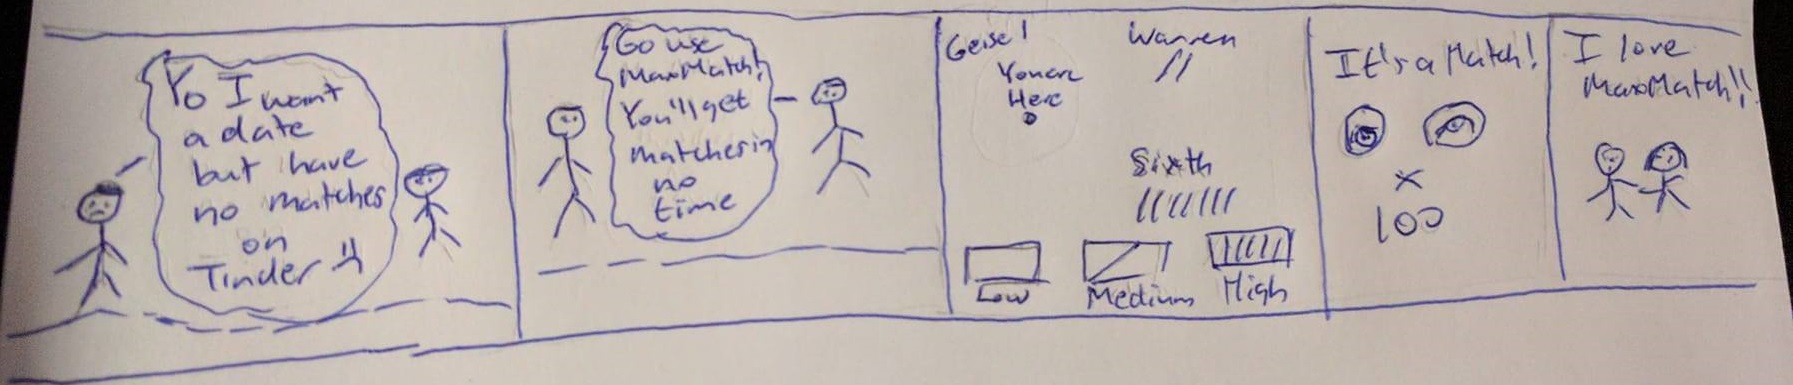 Yo I want
a date
but have
no matches
on
Tinder :(
Go use
MaxMatch!
You'll get
matches in
no
time
Geisel
You are
Here
Warren
Sixth
Low
Medium
High
It's a Match!
x
100
I love
MaxMatch!!